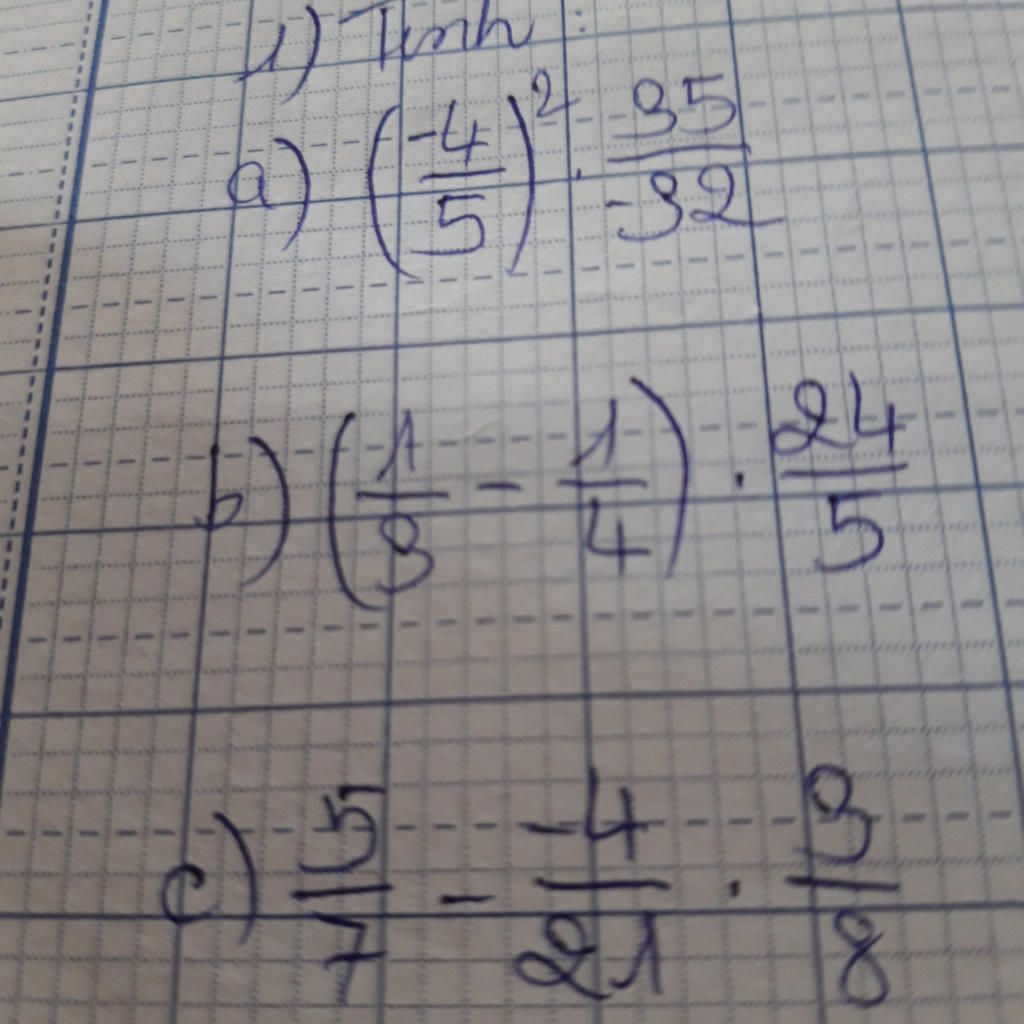 1) Tính :
a) (-4/5)² . 35/-32
b) (1/3 - 1/4) . 24/5
c) 5/7 - -4/21 . 3/8